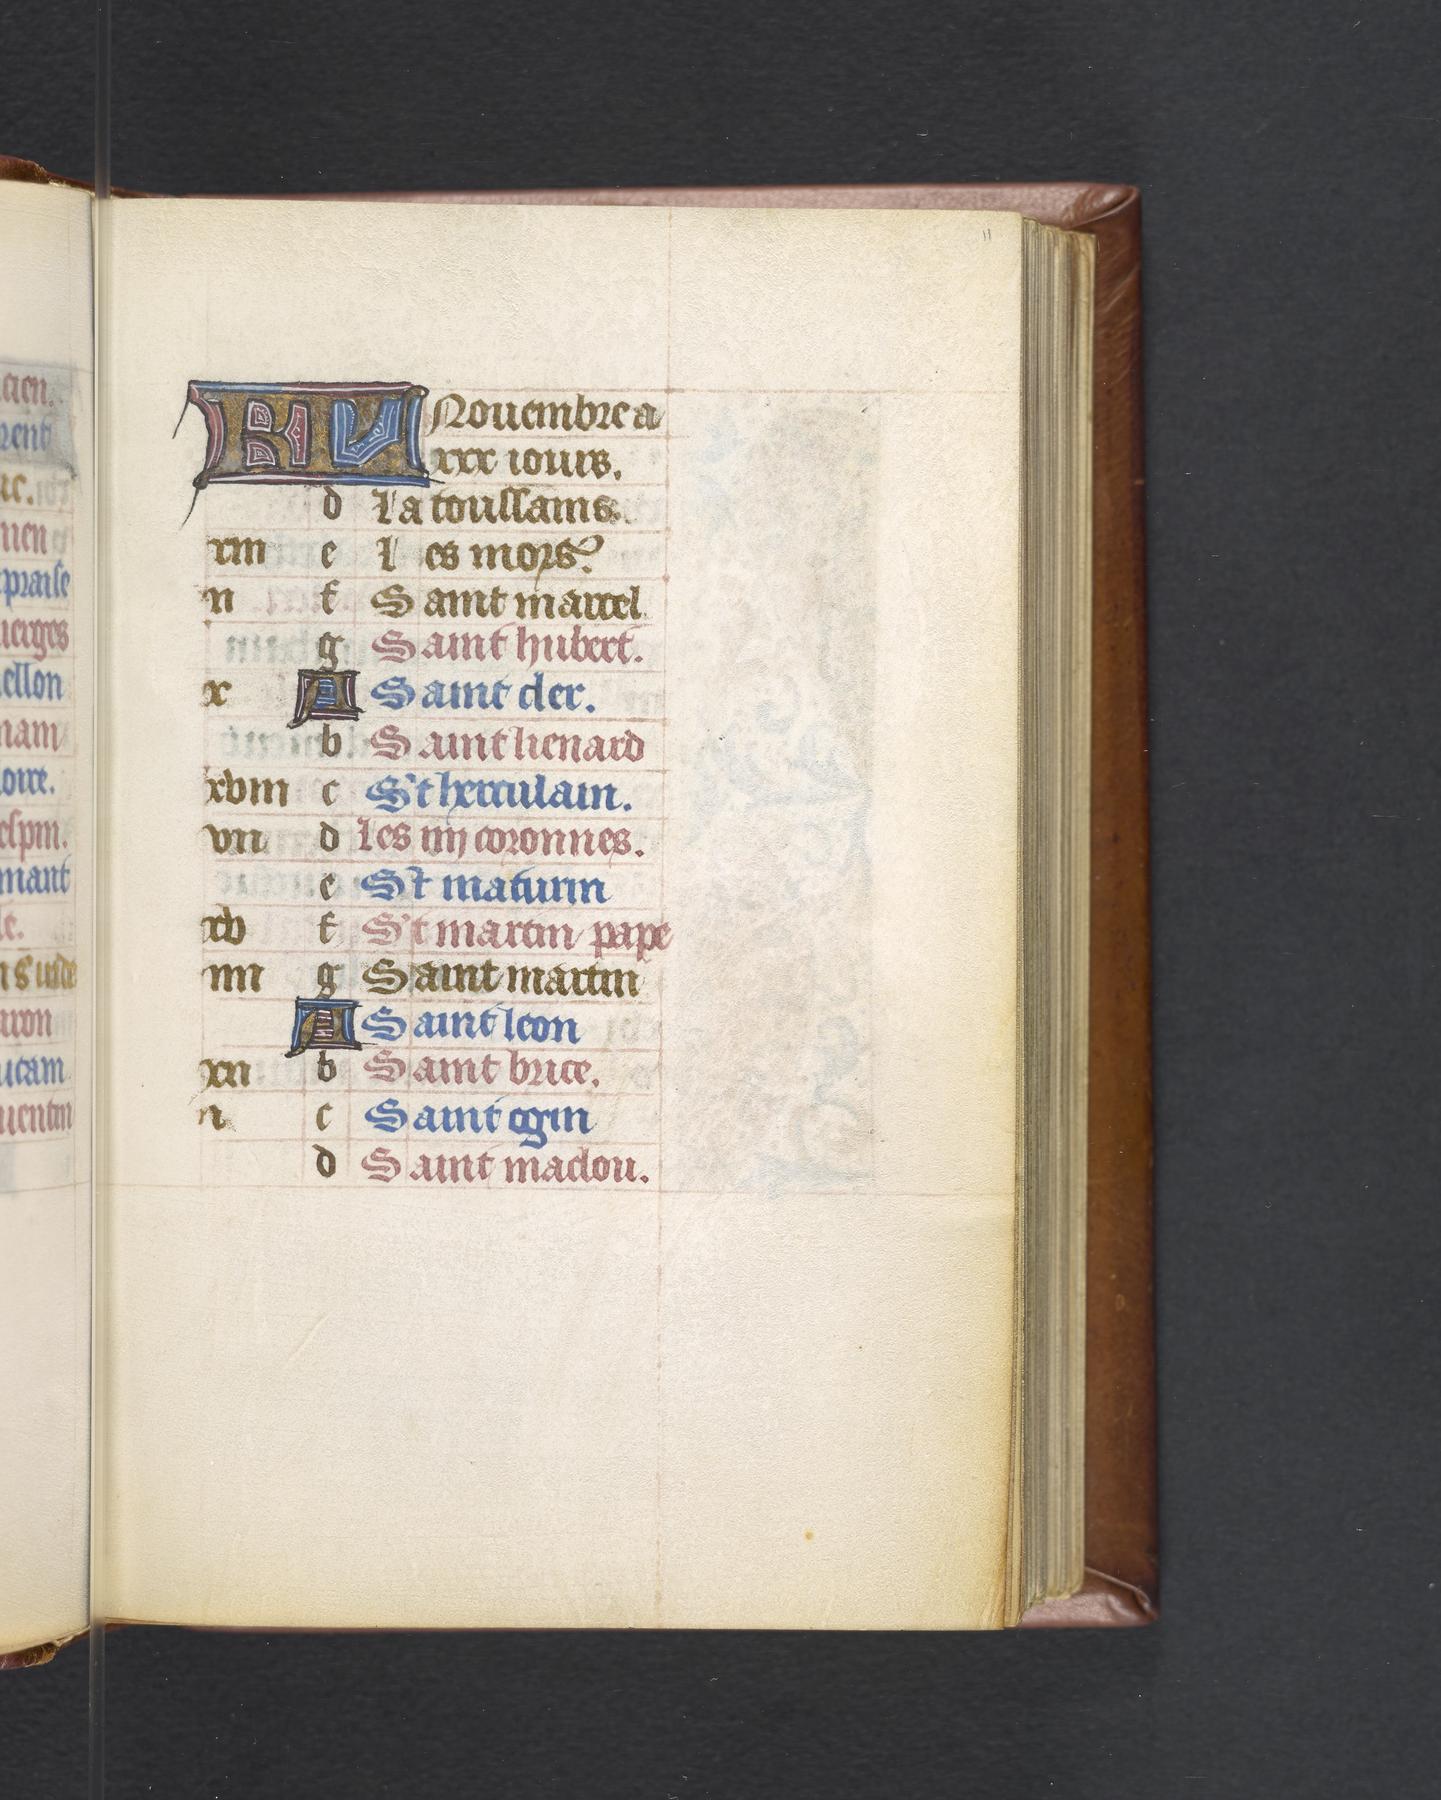 11
KL Nouembre a
xxx iours.
d La toussains.
xiii e Les mors.
ii f Saint marcel
g Saint hubert.
x A Saint cler.
b Saint lienard
xviii c St herculain.
vii d Les iiii coronnes.
e St maturin
xv f St martin pape
iiii g Saint martin
A Saint leon
xii b Saint brice.
i c Saint ogin
d Saint maclou.